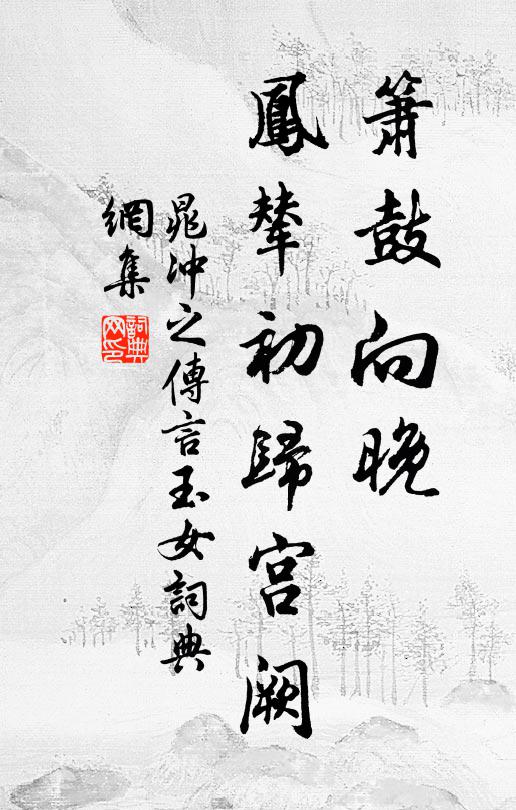 簫鼓向晚
鳳輦初歸宮闕
晁沖之傳言玉女詞典
網集
詞典
网印